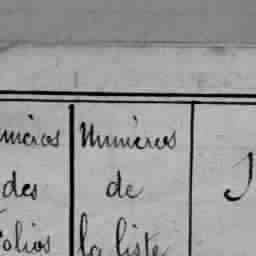 Numéros
des
Folios
Numéros
de
la liste